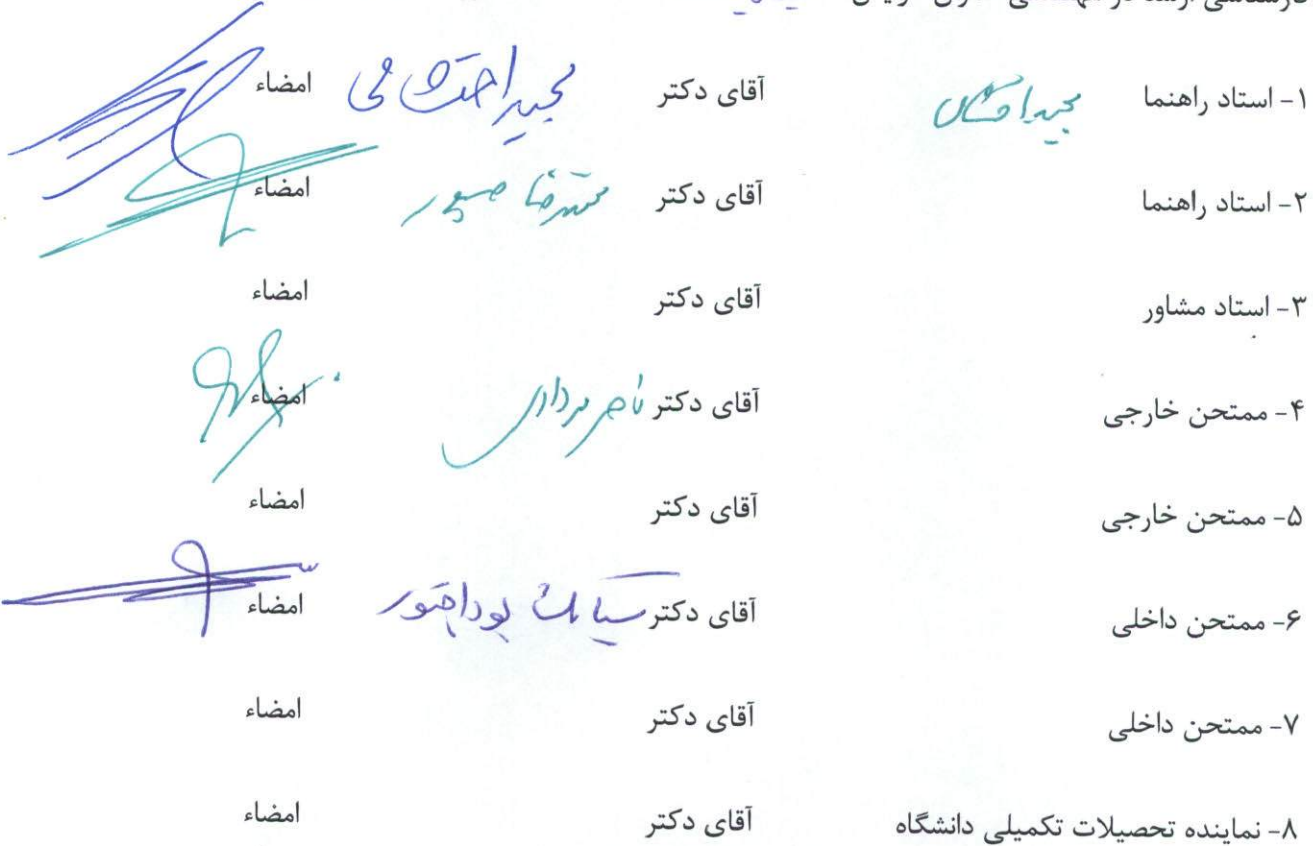 کارشناسی ارشد در مهندسی
۱- استاد راهنما مجید احتشامی آقای دکتر مجید احتشامی امضاء
۲- استاد راهنما آقای دکتر محمدرضا صبور امضاء
۳- استاد مشاور آقای دکتر امضاء
۴- ممتحن خارجی آقای دکتر ناصر مردادی امضاء
۵- ممتحن خارجی آقای دکتر امضاء
۶- ممتحن داخلی آقای دکتر سیامک بوداقپور امضاء
۷- ممتحن داخلی آقای دکتر امضاء
۸- نماینده تحصیلات تکمیلی دانشگاه آقای دکتر امضاء